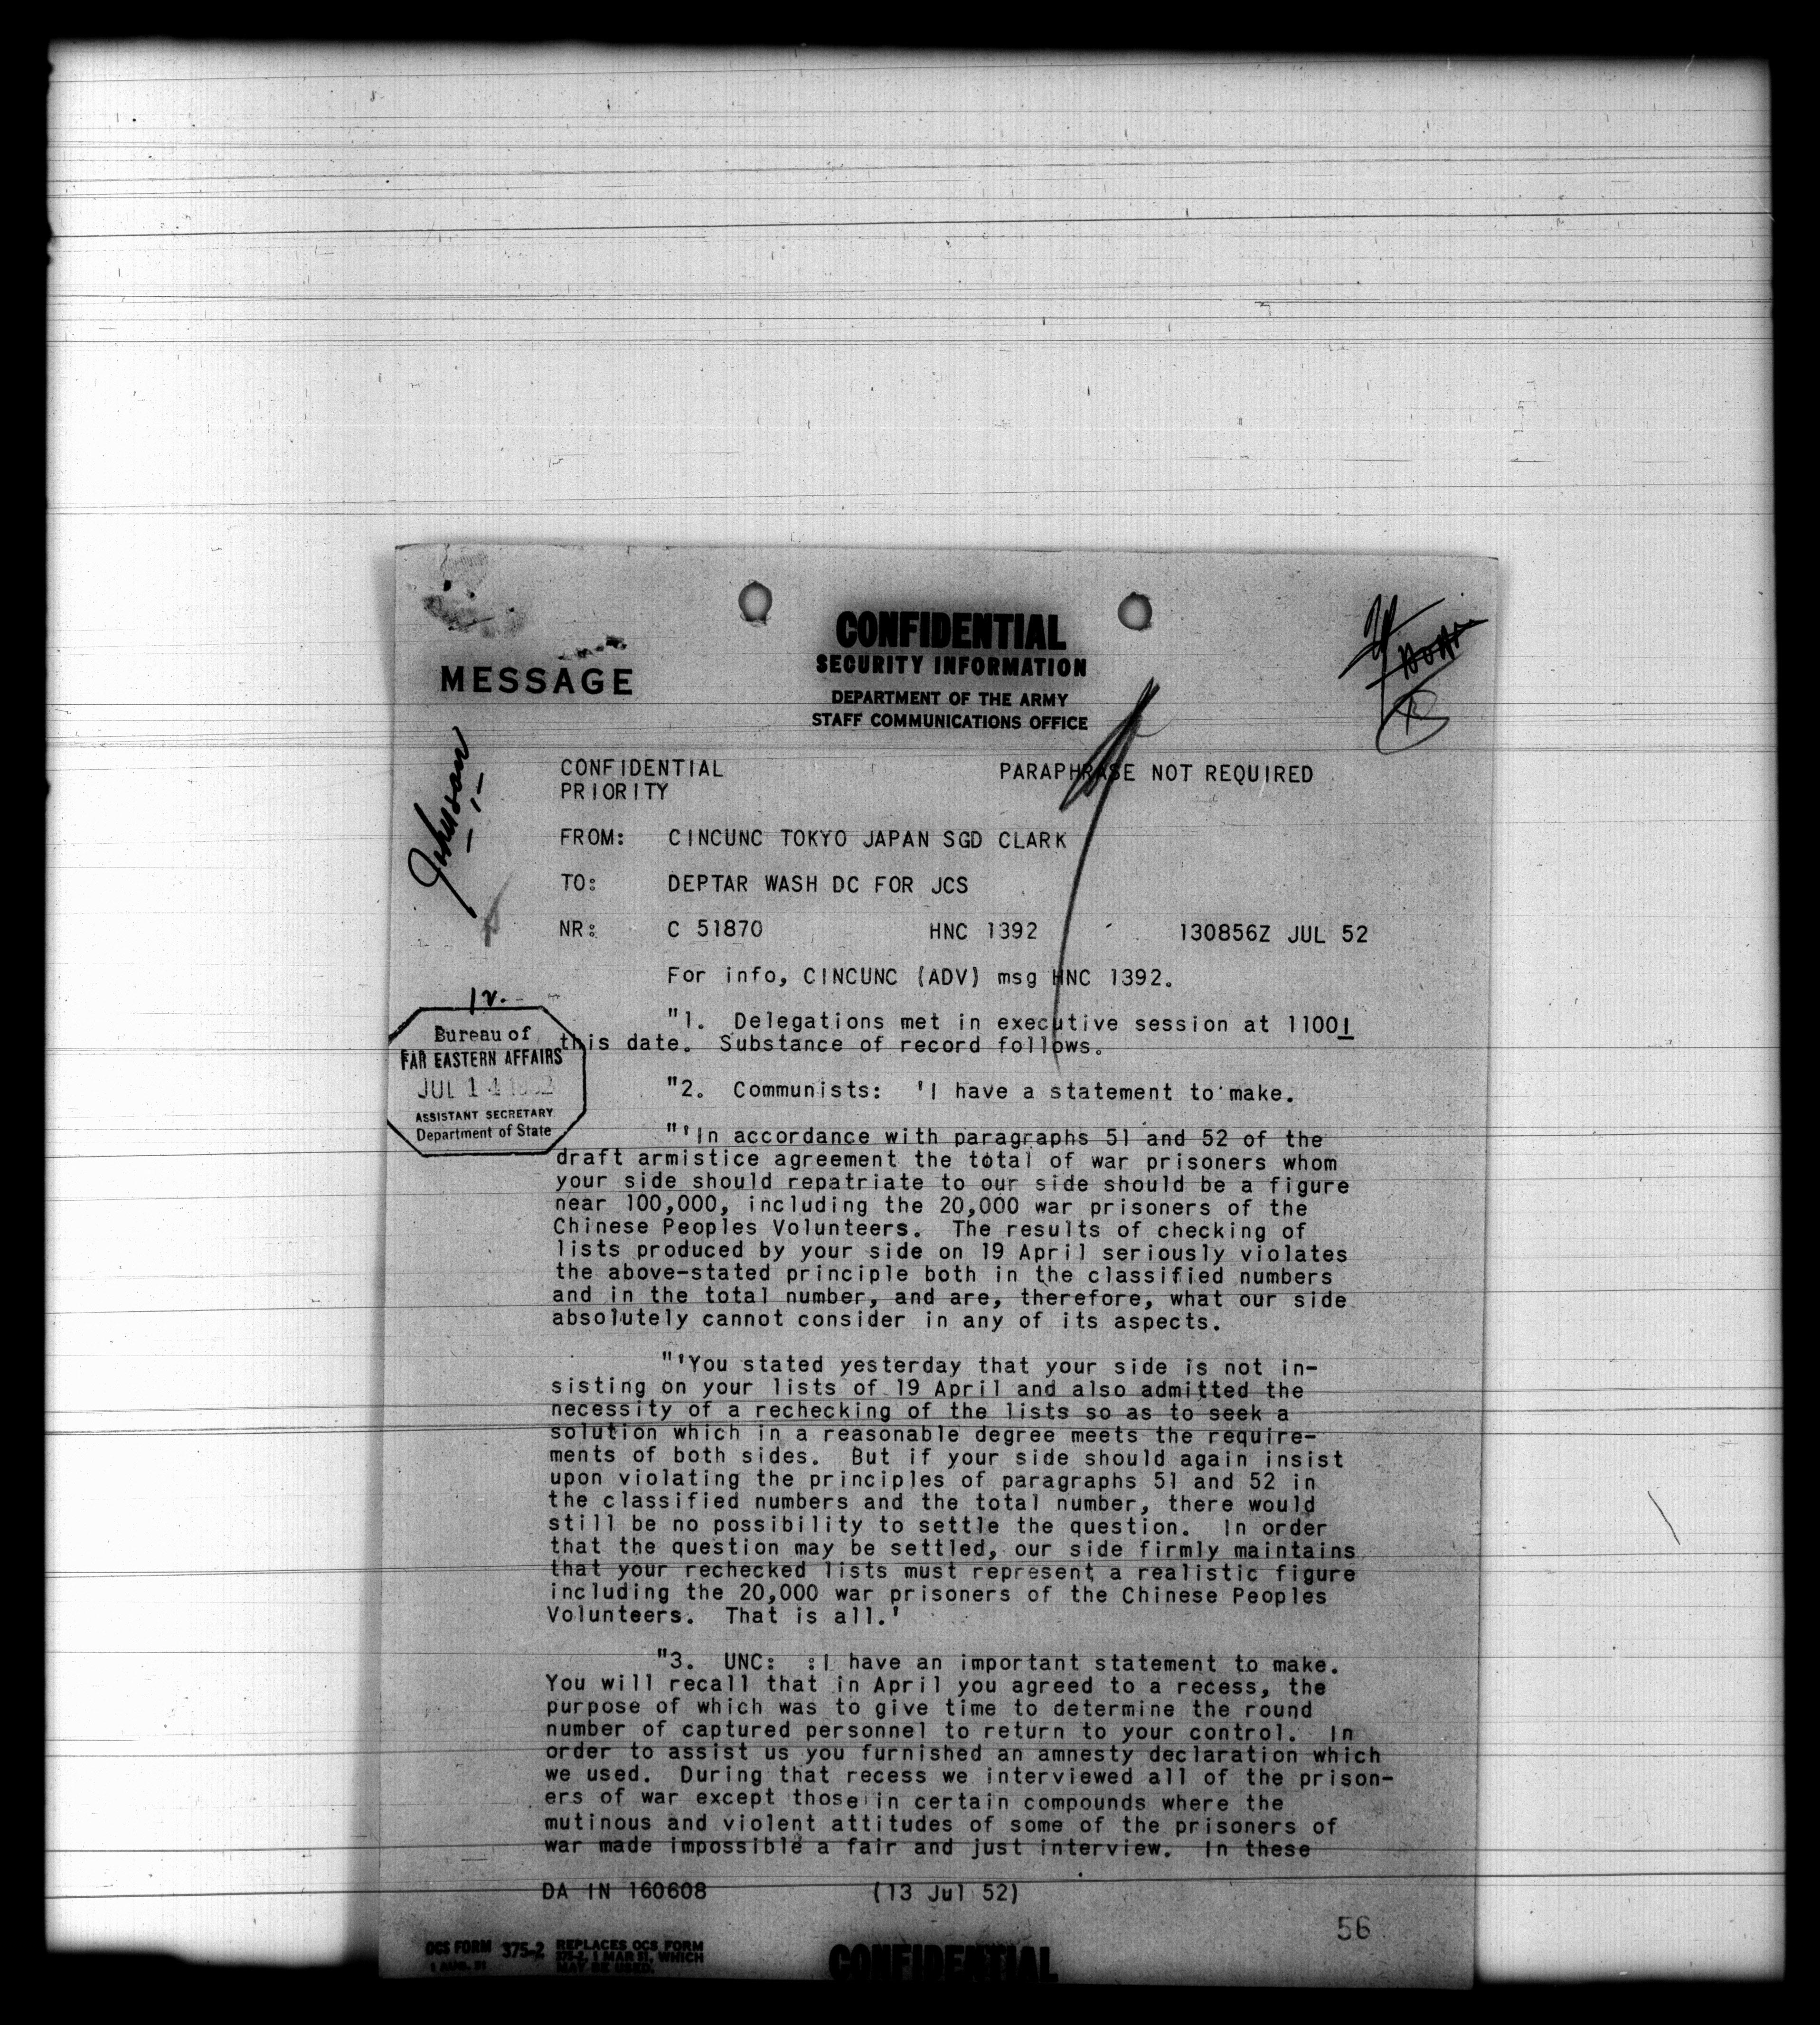 CONFIDENTIAL
SECURITY INFORMATION
MESSAGE
DEPARTMENT OF THE ARMY
STAFF COMMUNICATIONS OFFICE
Johnson
CONFIDENTIAL PARAPHRASE NOT REQUIRED
PRIORITY
FROM: CINCUNC TOKYO JAPAN SGD CLARK
TO: DEPTAR WASH DC FOR JCS
NR: C 51870 HNC 1392 130856Z JUL 52
For info, CINCUNC (ADV) msg HNC 1392.
Bureau of
FAR EASTERN AFFAIRS
JUL 14 1952
ASSISTANT SECRETARY
Department of State
"1. Delegations met in executive session at 1100I
this date. Substance of record follows.
"2. Communists: 'I have a statement to make.
"'In accordance with paragraphs 51 and 52 of the
draft armistice agreement the total of war prisoners whom
your side should repatriate to our side should be a figure
near 100,000, including the 20,000 war prisoners of the
Chinese Peoples Volunteers. The results of checking of
lists produced by your side on 19 April seriously violates
the above-stated principle both in the classified numbers
and in the total number, and are, therefore, what our side
absolutely cannot consider in any of its aspects.
"'You stated yesterday that your side is not in-
sisting on your lists of 19 April and also admitted the
necessity of a rechecking of the lists so as to seek a
solution which in a reasonable degree meets the require-
ments of both sides. But if your side should again insist
upon violating the principles of paragraphs 51 and 52 in
the classified numbers and the total number, there would
still be no possibility to settle the question. In order
that the question may be settled, our side firmly maintains
that your rechecked lists must represent a realistic figure
including the 20,000 war prisoners of the Chinese Peoples
Volunteers. That is all.'
"3. UNC: :I have an important statement to make.
You will recall that in April you agreed to a recess, the
purpose of which was to give time to determine the round
number of captured personnel to return to your control. In
order to assist us you furnished an amnesty declaration which
we used. During that recess we interviewed all of the prison-
ers of war except those in certain compounds where the
mutinous and violent attitudes of some of the prisoners of
war made impossible a fair and just interview. In these
DA IN 160608 (13 Jul 52)
56
OCS FORM 375-2 REPLACES OCS FORM
1 AUG. 51 375-2, 1 MAR 51, WHICH
MAY BE USED.
CONFIDENTIAL